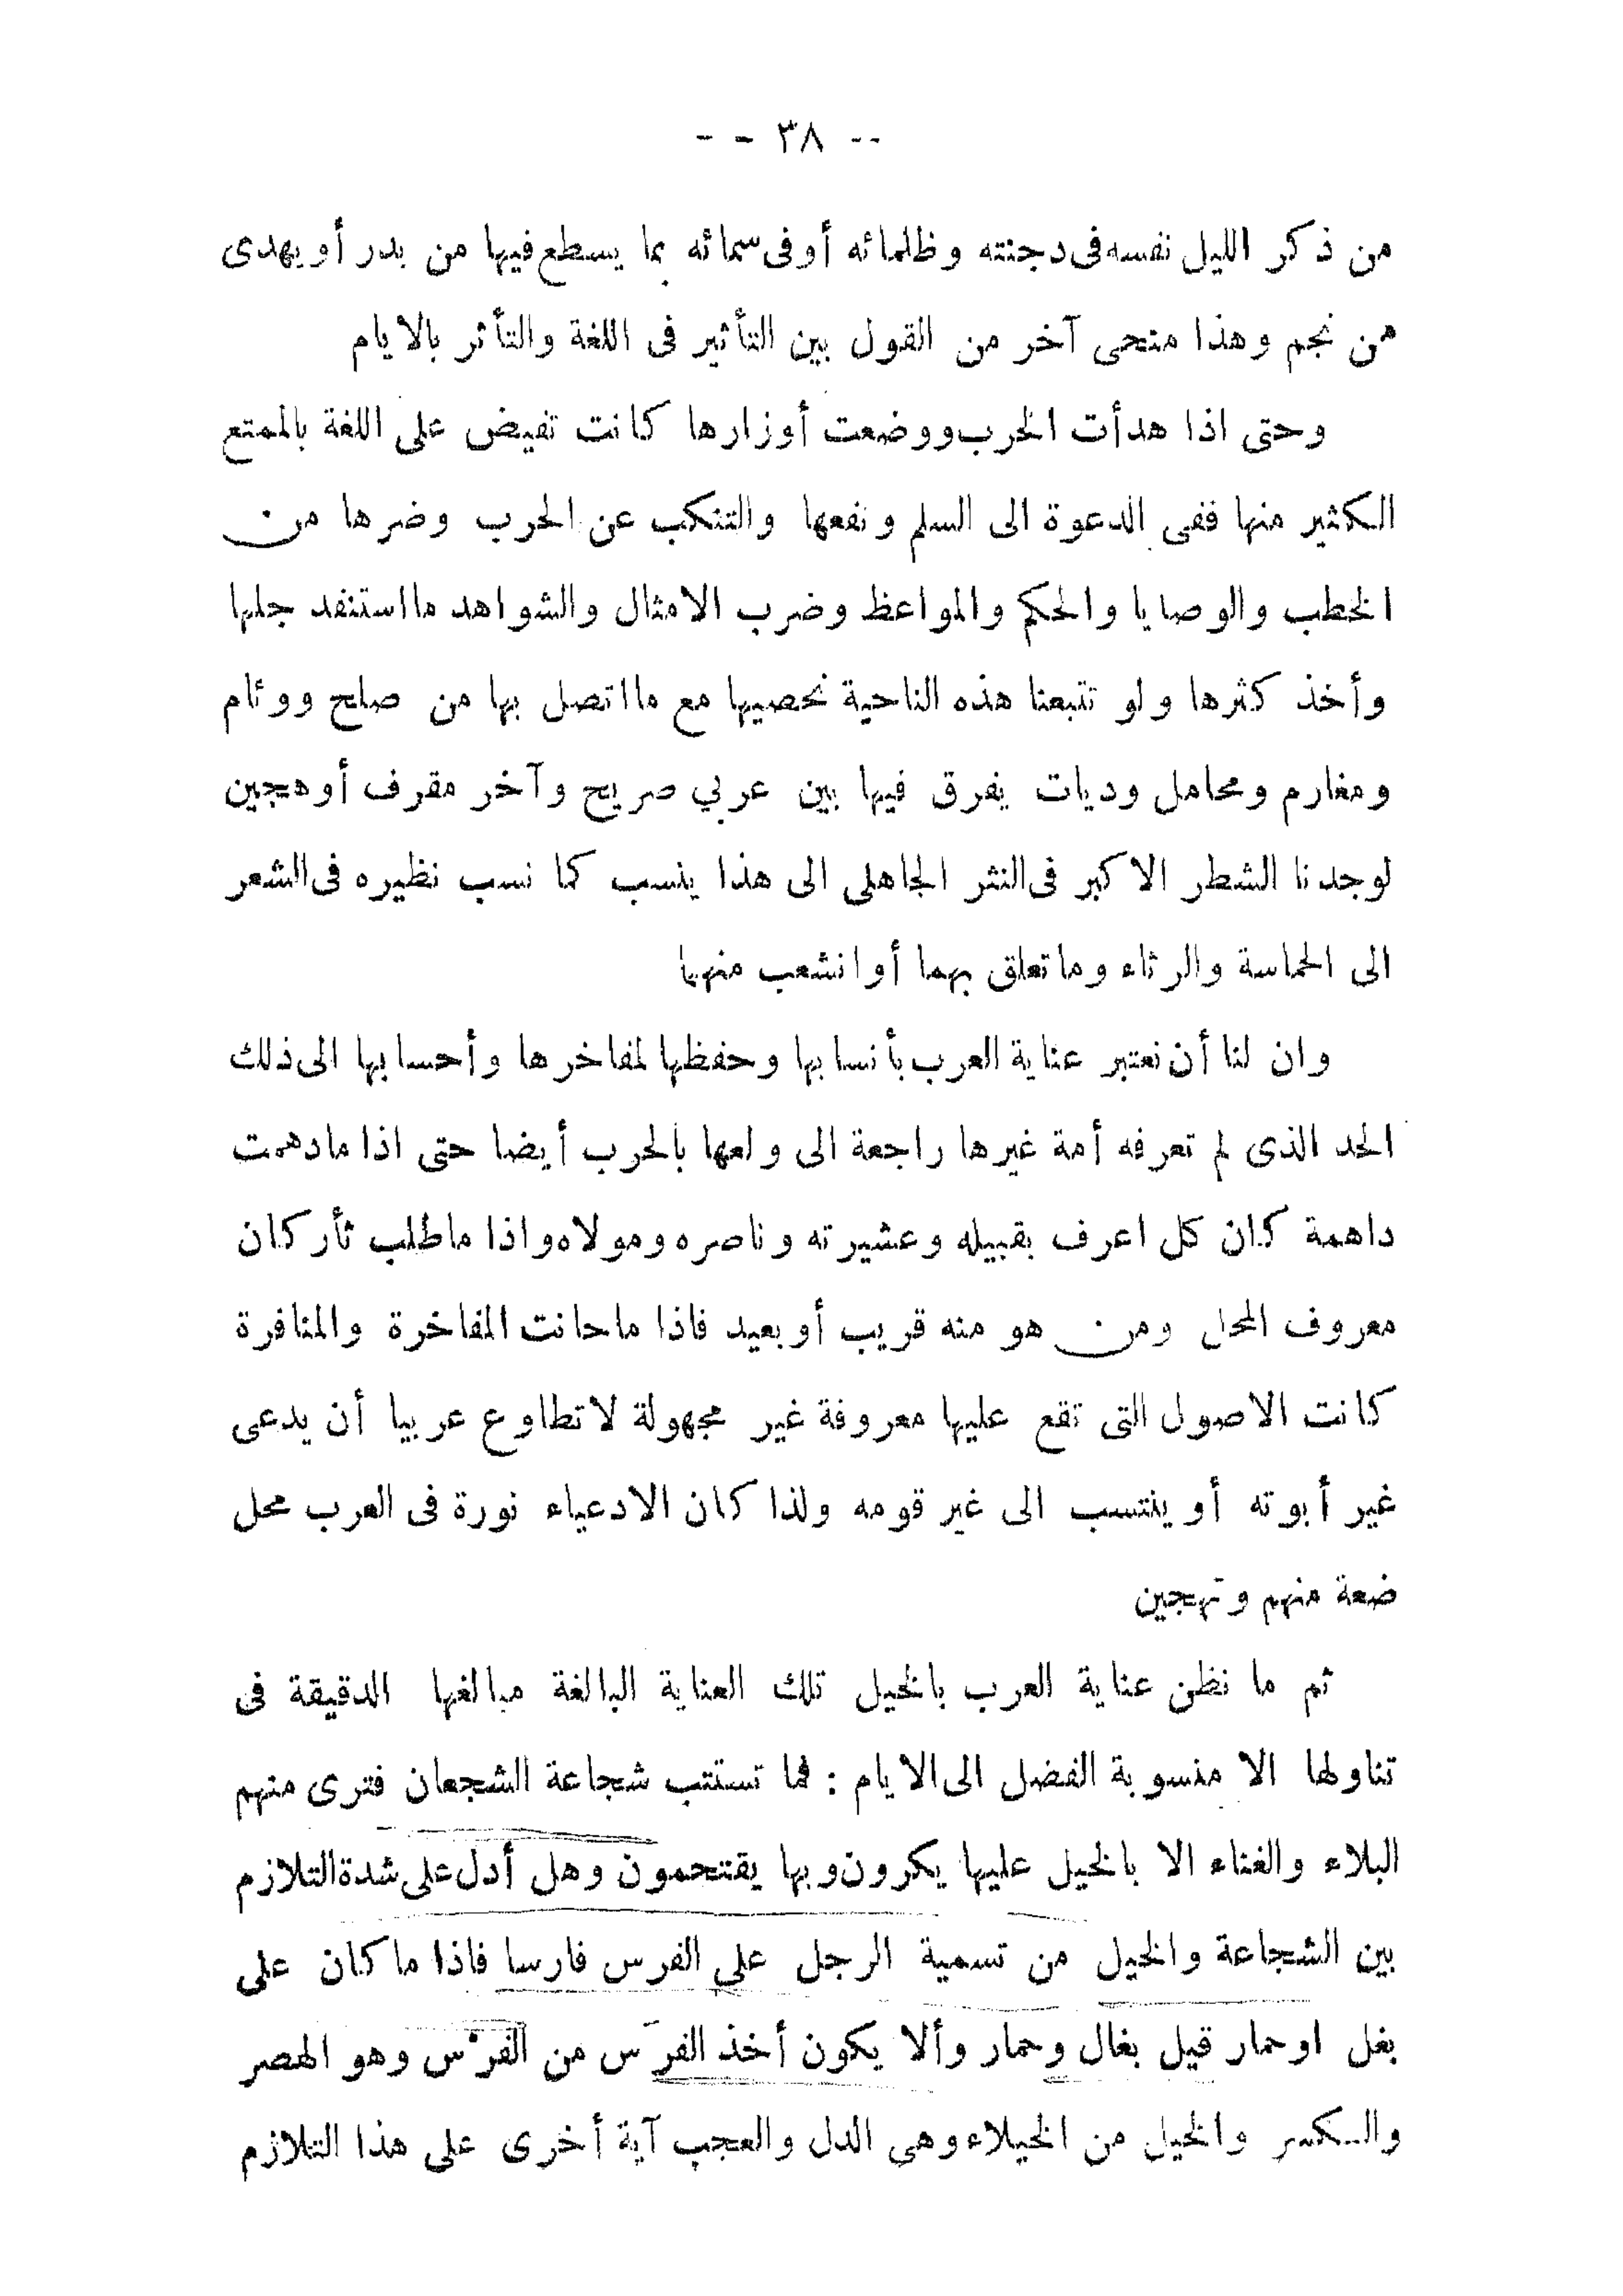 -- ٣٨ - -
من ذكر الليل نفسه فى دجنته وظلمائه أو فى سمائه بما يسطع فيها من بدر أو يهدى
من نجم وهذا منحى آخر من القول بين التأثير فى اللغة والتأثر بالايام
وحتى اذا هدأت الحرب ووضعت أوزارها كانت تفيض على اللغة بالممتع
الكثير منها ففى الدعوة الى السلم ونفعها والتنكب عن الحرب وضرها من
الخطب والوصايا والحكم والمواعظ وضرب الامثال والشواهد ما استنفد جلها
وأخذ كثرها ولو تتبعنا هذه الناحية نحصيها مع ما اتصل بها من صلح ووئام
ومغارم ومحامل وديات يفرق فيها بين عربي صريح وآخر مقرف أو هجين
لوجدنا الشطر الاكبر فى النثر الجاهلى الى هذا ينسب كما نسب نظيره فى الشعر
الى الحماسة والرثاء وما تعلق بهما أو انشعب منهما
وان لنا أن نعتبر عناية العرب بأنسابها وحفظها لمفاخرها وأحسابها الى ذلك
الحد الذى لم تعرفه أمة غيرها راجعة الى ولعها بالحرب أيضا حتى اذا ما دهمت
داهمة كان كل اعرف بقبيله وعشيرته وناصره ومولاه واذا ما طلب ثأر كان
معروف المحل ومن هو منه قريب أو بعيد فاذا ما حانت المفاخرة والمنافرة
كانت الاصول التى تقع عليها معروفة غير مجهولة لا تطاوع عربيا أن يدعى
غير أبوته أو ينتسب الى غير قومه ولذا كان الادعياء نورة فى العرب محل
ضعة منهم وتهجين
ثم ما نظن عناية العرب بالخيل تلك العناية البالغة مبالغها الدقيقة فى
تناولها الا منسوبة الفضل الى الايام : فما تستتب شجاعة الشجعان فترى منهم
البلاء والغناء الا بالخيل عليها يكرون وبها يقتحمون وهل أدل على شدة التلازم
بين الشجاعة والخيل من تسمية الرجل على الفرس فارسا فاذا ما كان على
بغل او حمار قيل بغال وحمار وألا يكون أخذ الفرَس من الفرْس وهو الهصر
والكسر والخيل من الخيلاء وهى الدل والعجب آية أخرى على هذا التلازم